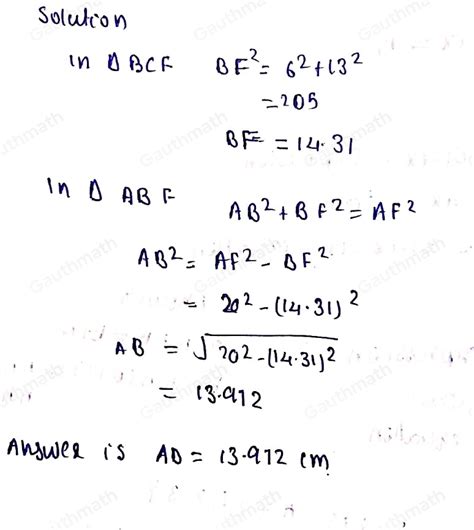 Solution
In Δ BCF BF² = 6² + 13²
= 205
BF = 14.31
In Δ ABF
AB² + BF² = AF²
AB² = AF² - BF²
= 20² - (14.31)²
AB = √20² - (14.31)²
= 13.972
Answer is AD = 13.972 cm